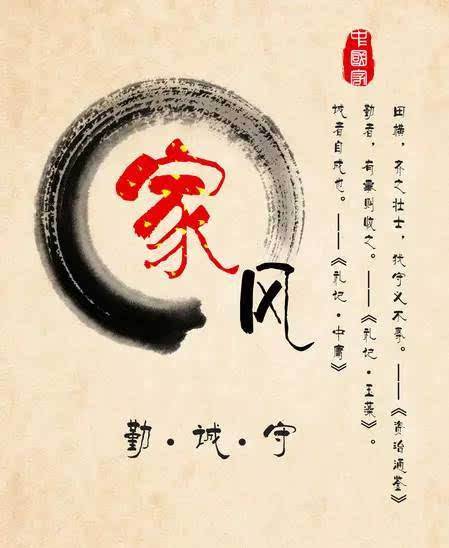 中國家
家
风
田横，齐之壮士，犹守义不辱。——《资治通鉴》
勤者，有事则收之。——《礼记·玉藻》。
诚者自成也。——《礼记·中庸》
勤·诚·守